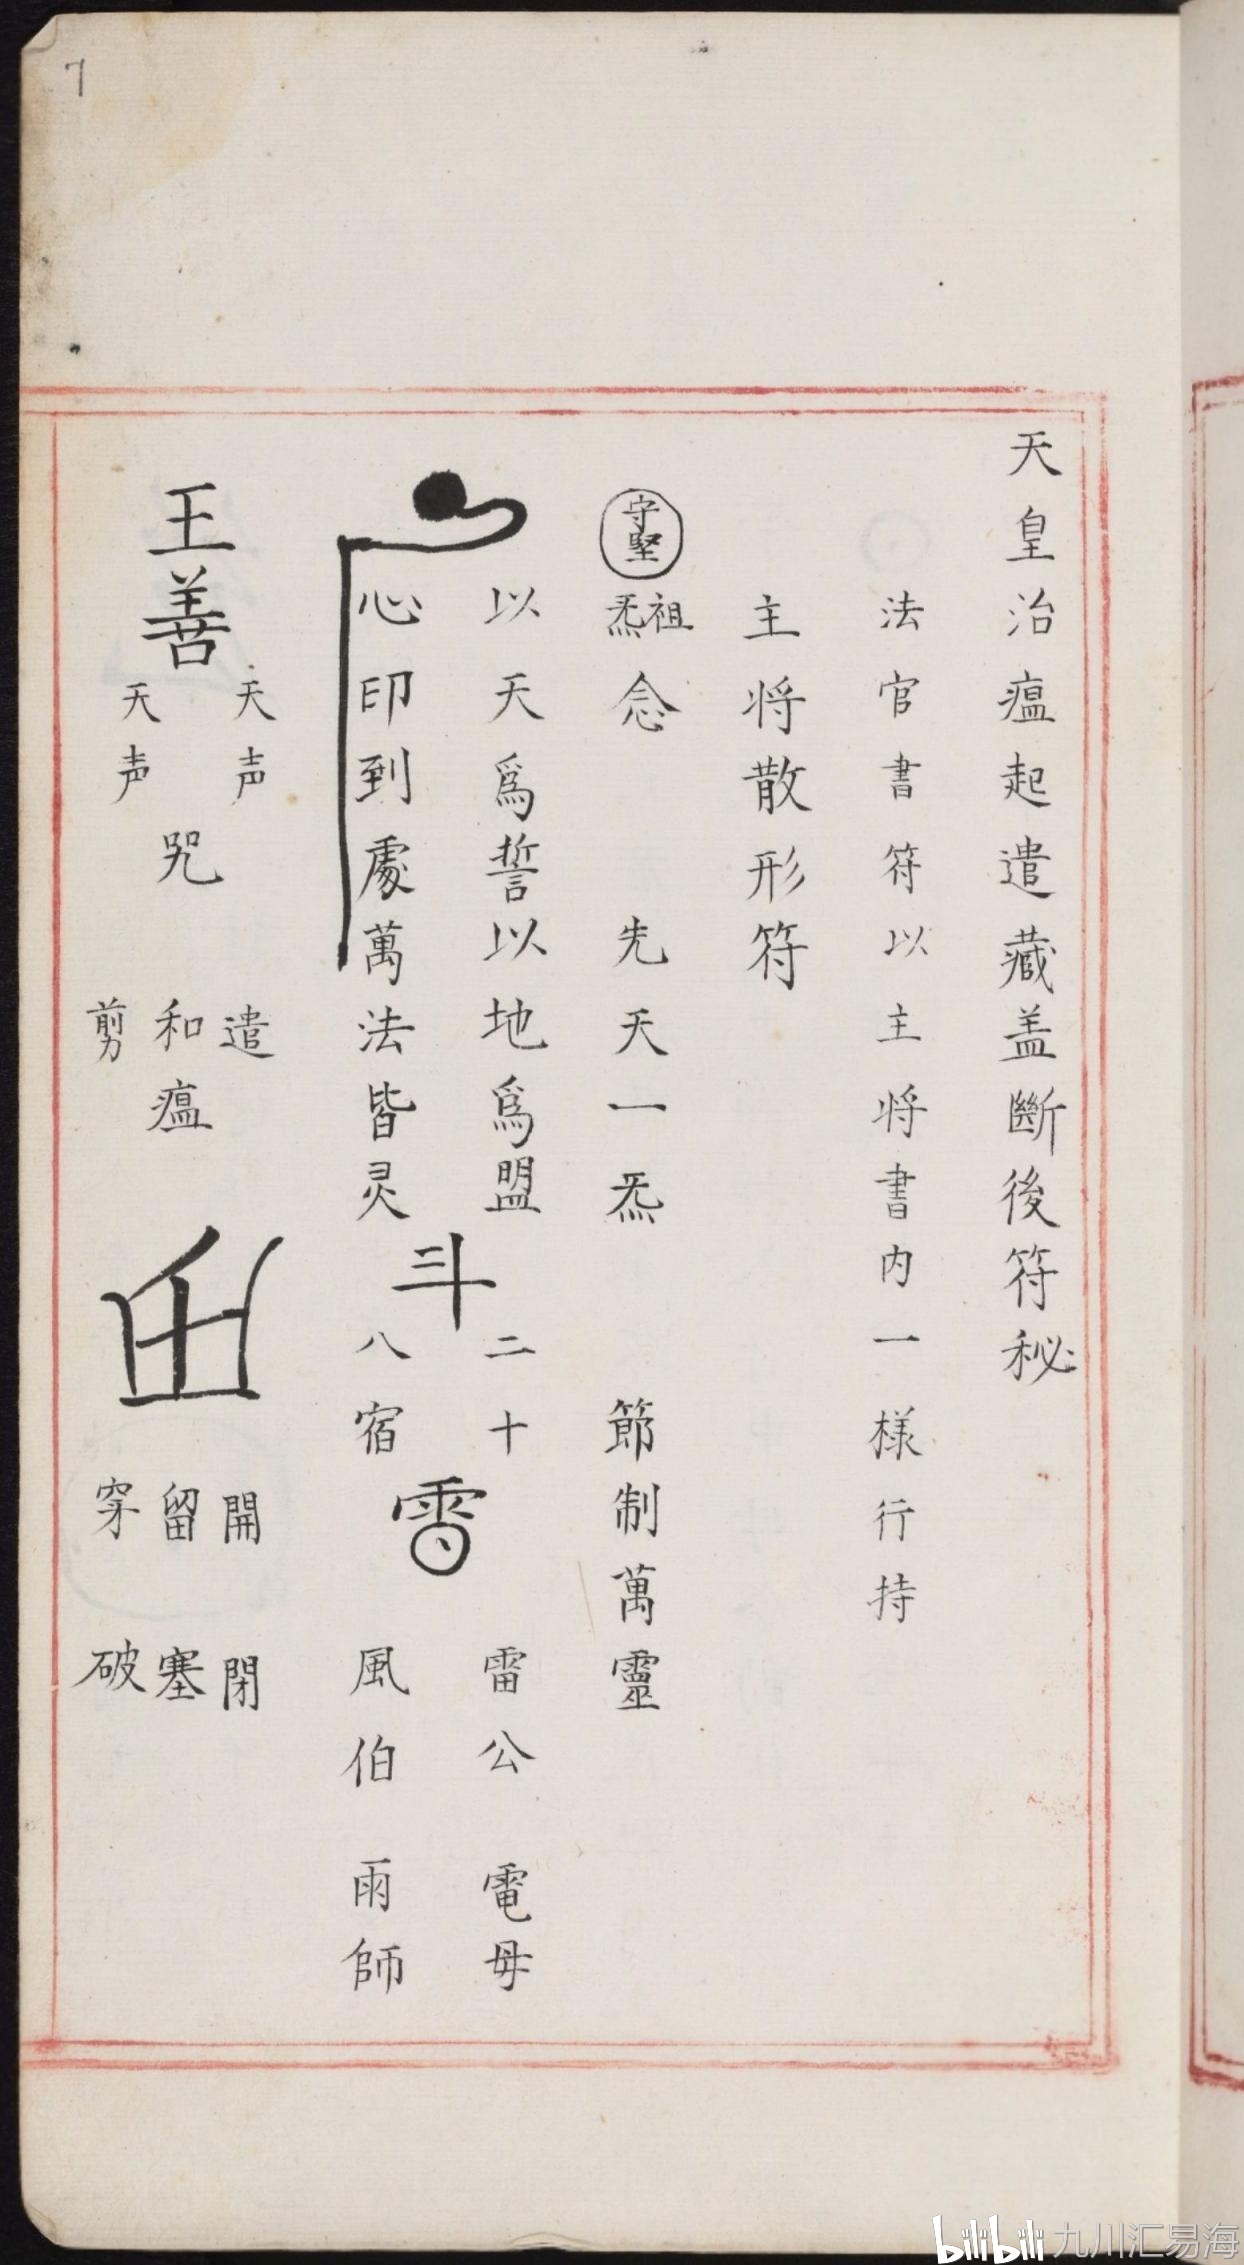 7
天皇治瘟起遣藏盖斷後符秘
法官書符以主将書内一様行持
主将散形符
守堅
祖炁念 先天一炁 節制萬靈
以天爲誓以地爲盟
心印到處萬法皆灵
斗
二十
八宿
雷公 電母
風伯 雨師
王善
天声
天声
咒
遣
和瘟
剪
開 閉
留 塞
穿 破
bilibili 九川汇易海